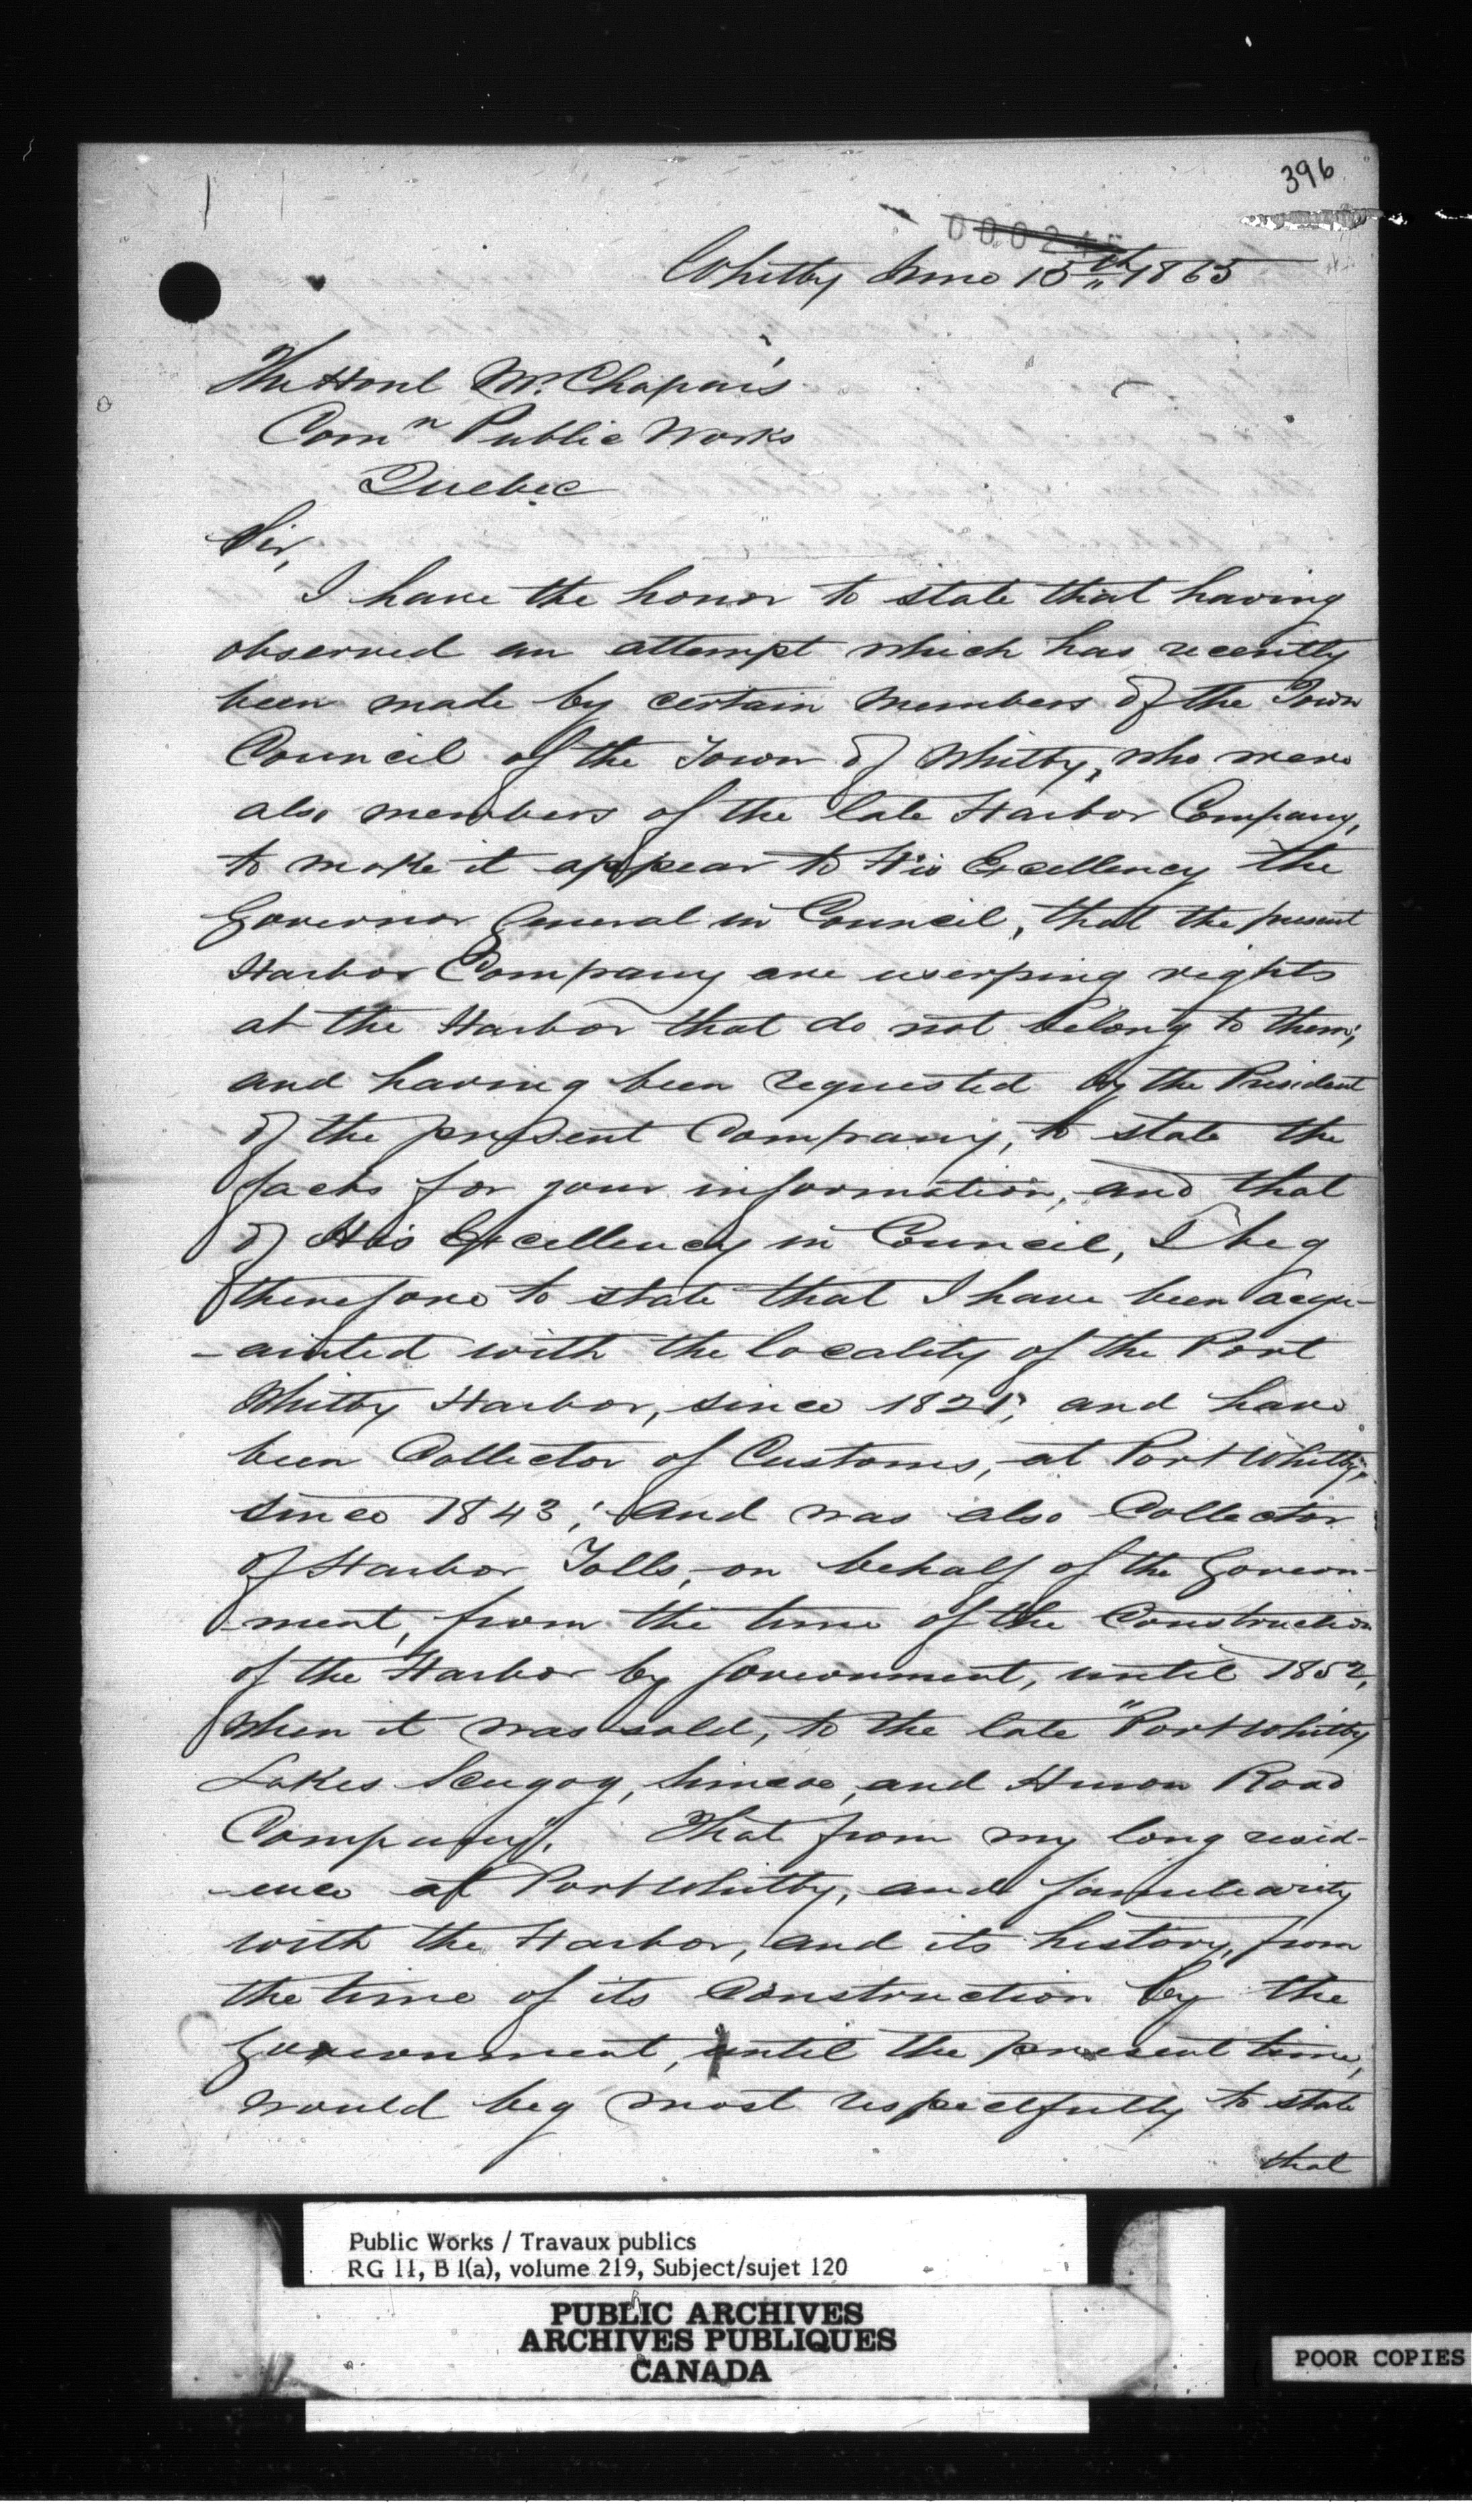 396
Whitby June 15th 1865
The Honl Mr. Chapais
Comn Public Works
Quebec
Sir,
I have the honor to state that having
observed an attempt which has recently
been made by certain members of the Town
Council of the Town of Whitby, who were
also members of the late Harbor Company,
to make it appear to His Excellency the
Governor General in Council, that the present
Harbor Company are userping rights
at the Harbor that do not belong to them;
and having been requested by the President
of the present Company, to state the
facts for your information, and that
of His Excellency in Council, I beg
therefore to state that I have been acqu-
-ainted with the locality of the Port
Whitby Harbor, since and have
been Collector of Customs, at Port Whitby,
since 1843; and was also Collector
of Harbor Tolls, on behalf of the Govern-
-ment, from the time of the Construction
of the Harbor by Government, until 1852,
when it was sold, to the late "Port Whitby
Lakes Scugog, Simcoe, and Huron Road
Company". That from my long resid-
-ence at Port Whitby, and familiarity
with the Harbor, and its history, from
the time of its Construction by the
Government, until the present time,
would beg most respectfully to state
that
Public Works / Travaux publics
RG 11, B 1(a), volume 219, Subject/sujet 120
PUBLIC ARCHIVES
ARCHIVES PUBLIQUES
CANADA
POOR COPIES